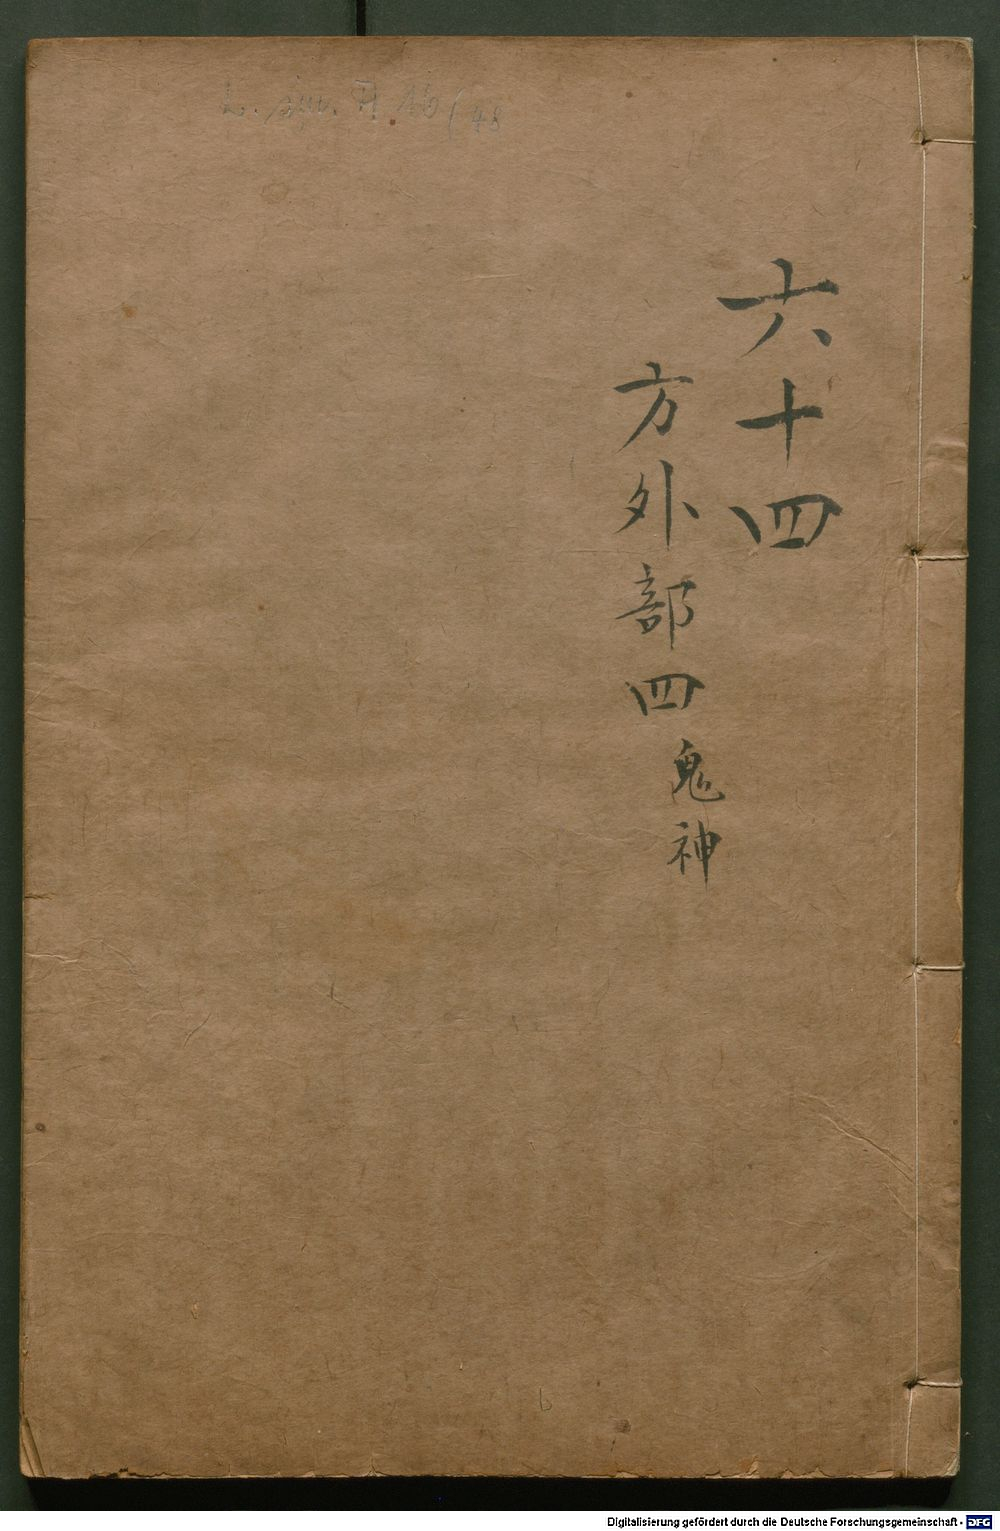 L. sin. H 46 (48
六十四
方外部四鬼神
Digitalisierung gefördert durch die Deutsche Forschungsgemeinschaft - DFG